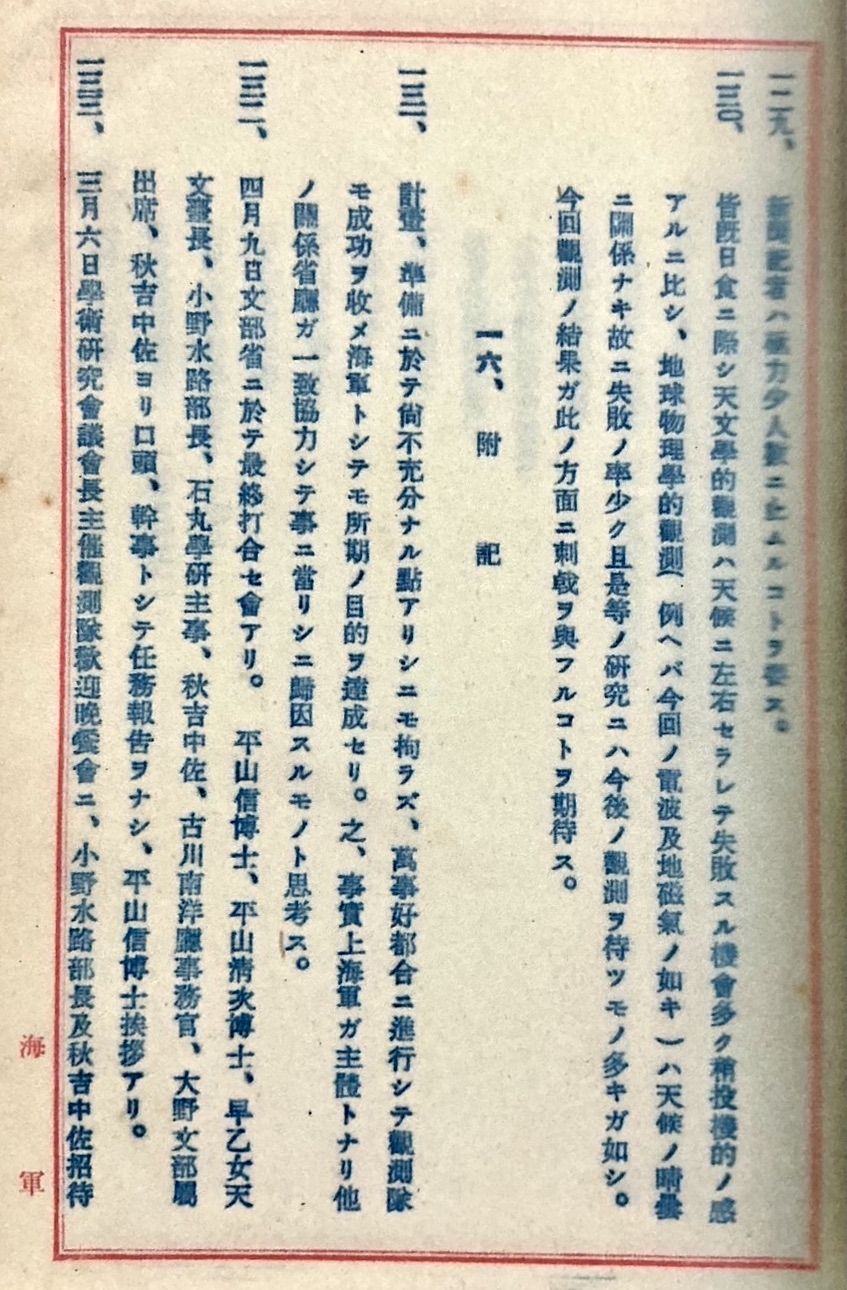 一二九、 新聞記者ハ極力少人數ニ止ムルコトヲ要ス。
一三〇、 皆既日食ニ際シ天文學的觀測ハ天候ニ左右セラレテ失敗スル機會多ク稍投機的ノ感
アルニ比シ、地球物理學的觀測(例ヘバ今回ノ電波及地磁氣ノ如キ)ハ天候ノ晴曇
ニ關係ナキ故ニ失敗ノ率少ク且是等ノ研究ニハ今後ノ觀測ヲ待ツモノ多キガ如シ。
今回觀測ノ結果ガ此ノ方面ニ刺戟ヲ與フルコトヲ期待ス。
一六、附記
一三一、 計畫、準備ニ於テ尙不充分ナル點アリシニモ拘ラズ、萬事好都合ニ進行シテ觀測隊
モ成功ヲ收メ海軍トシテモ所期ノ目的ヲ達成セリ。之、事實上海軍ガ主體トナリ他
ノ關係省廳ガ一致協力シテ事ニ當リシニ歸因スルモノト思考ス。
一三二、 四月九日文部省ニ於テ最終打合セ會アリ。 平山信博士、平山淸次博士、早乙女天
文臺長、小野水路部長、石丸學研主事、秋吉中佐、古川南洋廳事務官、大野文部屬
出席、秋吉中佐ヨリ口頭、幹事トシテ任務報告ヲナシ、平山信博士挨拶アリ。
一三三、 三月六日學術研究會議會長主催觀測隊歡迎晩餐會ニ、小野水路部長及秋吉中佐招待
海軍